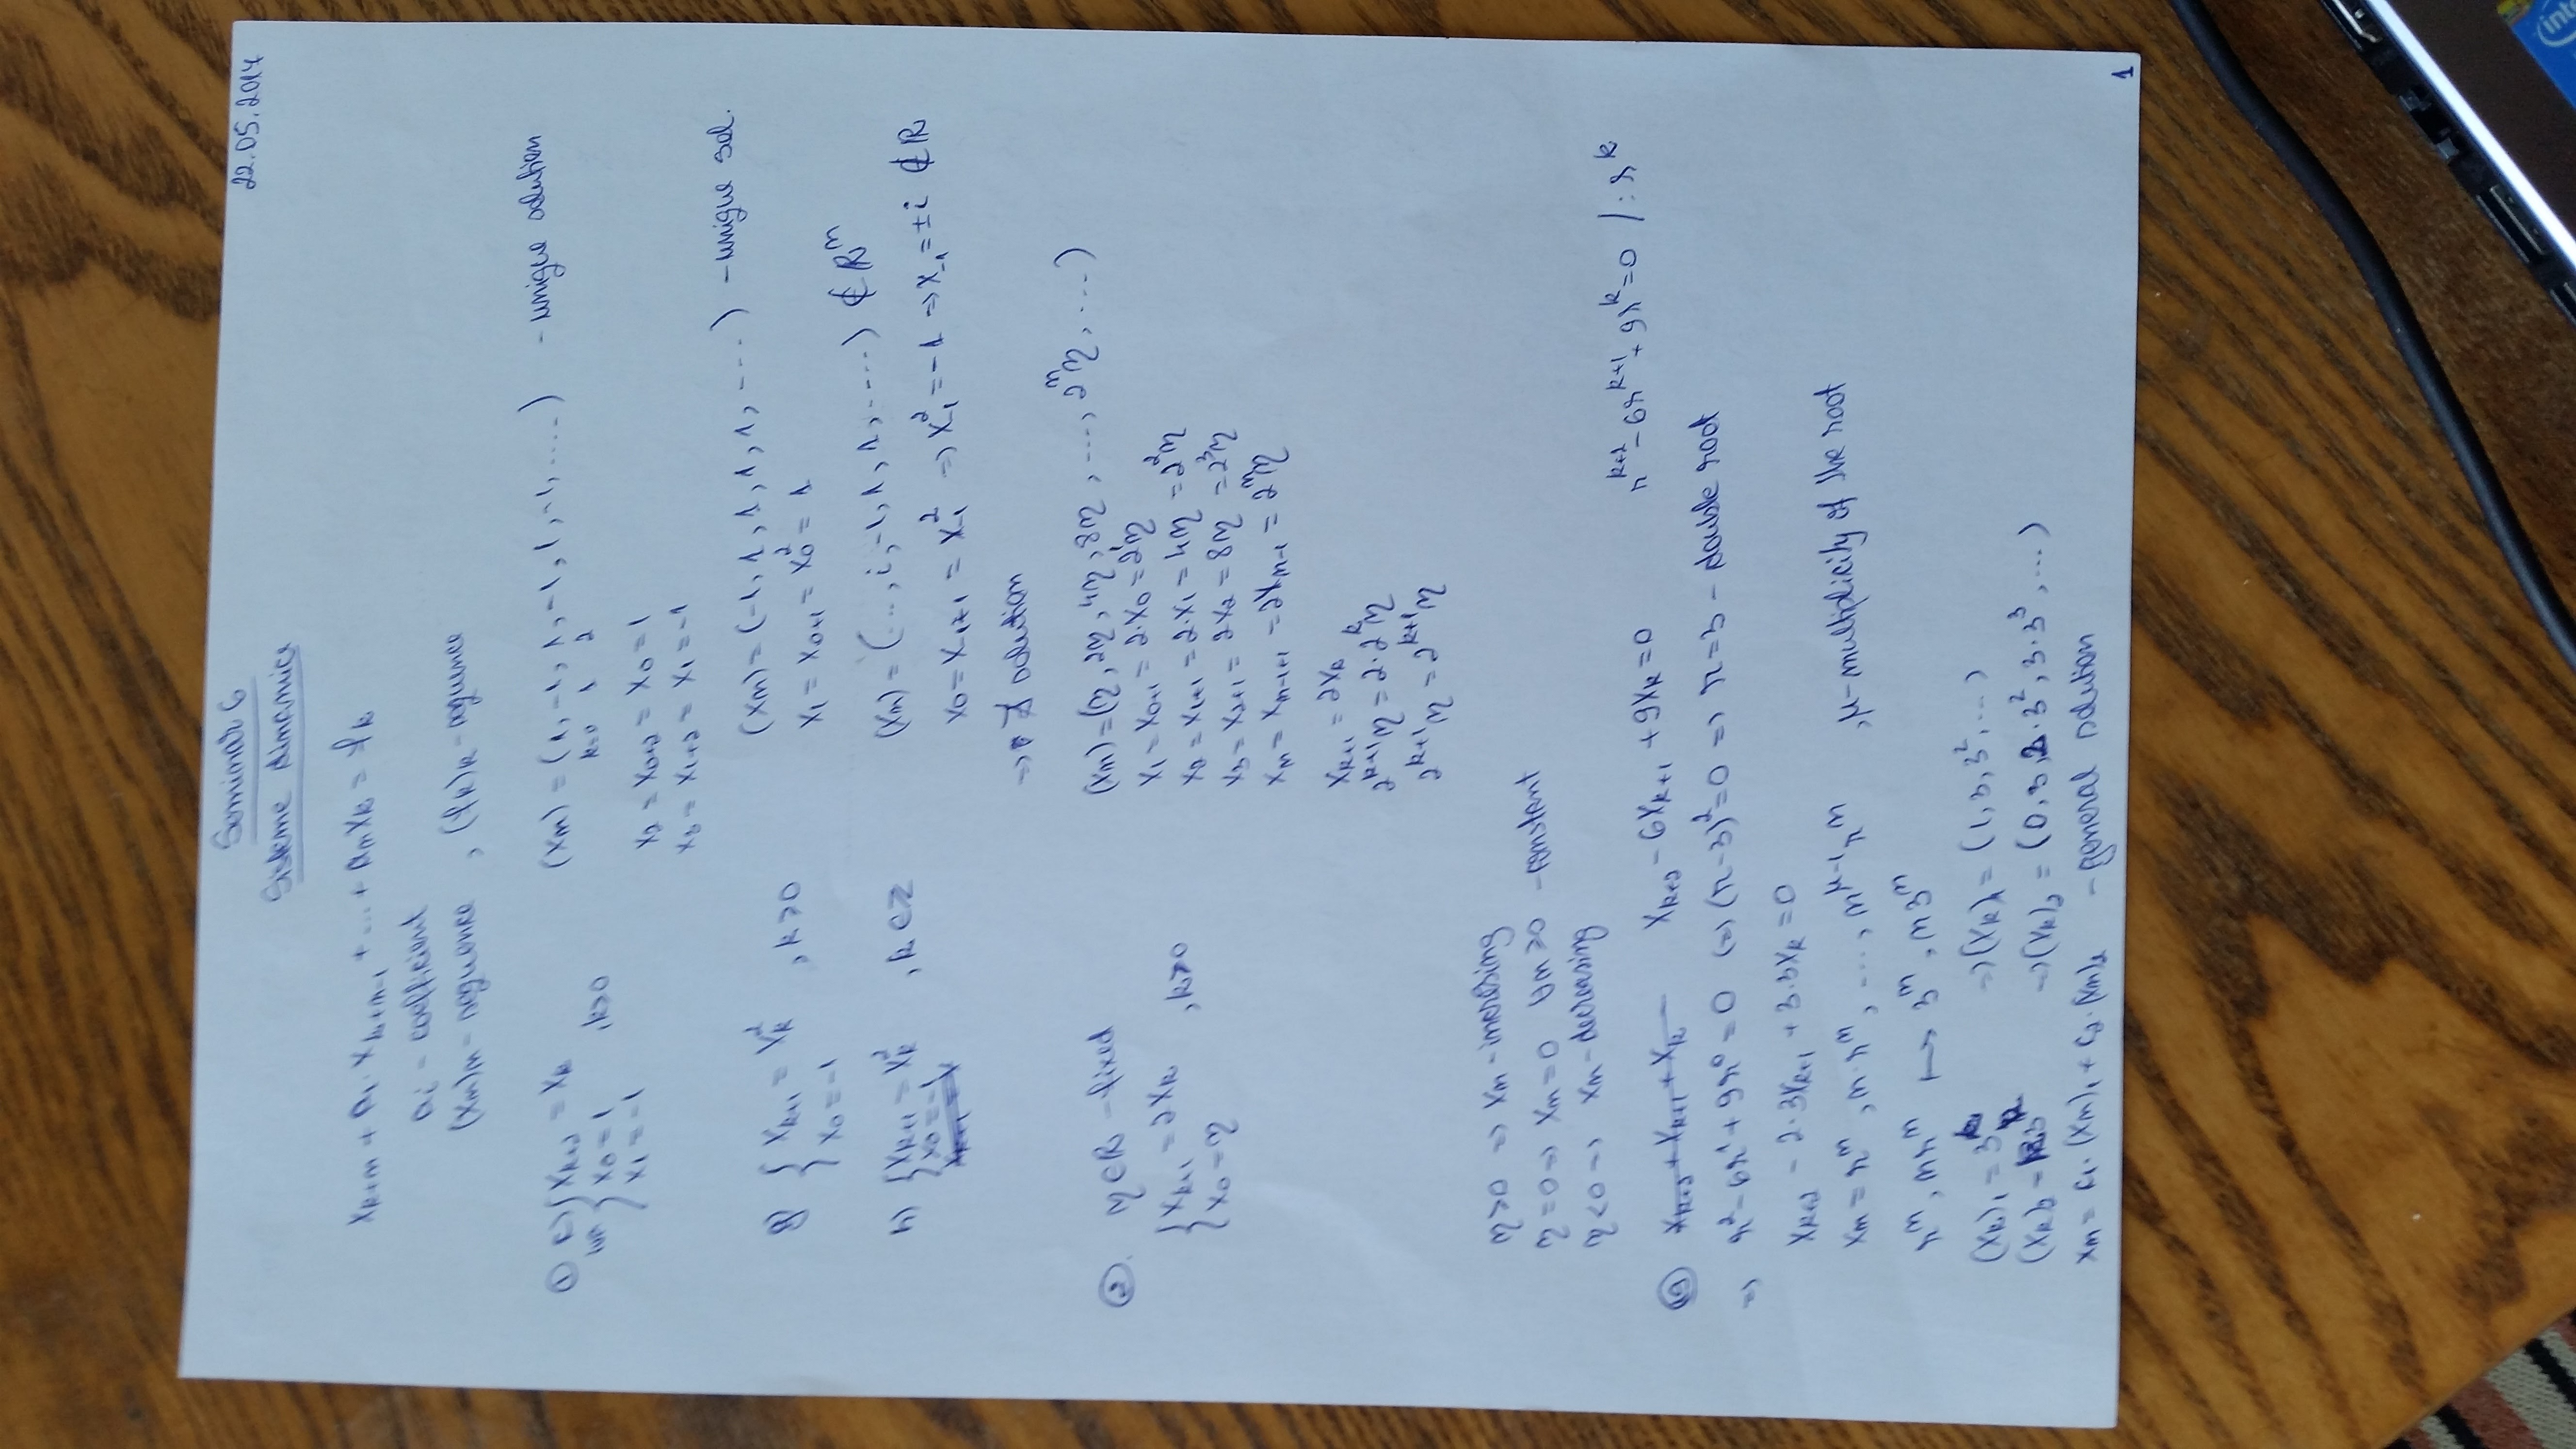 22.05.2014
Seminar 6
Sisteme dinamice
x_{k+n} + a_1 · x_{k+n-1} + ... + a_n x_k = f_k
a_i - coefficient
(x_n)_n - sequence , (f_k)_k - sequence
① c) { x_{k+2} = x_k , k≥0 (x_n) = (1, -1, 1, -1, 1, -1, ....) - unique solution
x_0 = 1 k=0 1 2
x_1 = -1 x_2 = x_{0+2} = x_0 = 1
x_3 = x_{1+2} = x_1 = -1
g) { x_{k+1} = x_k^2 , k≥0 (x_n) = (-1, 1, 1, 1, 1, ....) - unique sol.
x_0 = -1 x_1 = x_{0+1} = x_0^2 = 1
h) { x_{k+1} = x_k^2 , k∈Z (x_n) = (..., i, -1, 1, 1, ....) ∉ R^n
x_0 = -1 x_0 = x_{-1+1} = x_{-1}^2 => x_{-1}^2 = -1 => x_{-1} = ±i ∉ R
=> ∄ solution
② η∈R - fixed
{ x_{k+1} = 2x_k , k≥0 (x_n) = (η, 2η, 4η, 8η, ...., 2^n η, ....)
x_0 = η x_1 = x_{0+1} = 2·x_0 = 2^1 η
x_2 = x_{1+1} = 2·x_1 = 4η = 2^2 η
x_3 = x_{2+1} = 2x_2 = 8η = 2^3 η
x_n = x_{n-1+1} = 2x_{n-1} = 2^n η
x_{k+1} = 2x_k
2^{k+1} η = 2·2^k η
2^{k+1} η = 2^{k+1} η
η>0 => x_n - increasing
η=0 => x_n = 0 ∀n≥0 - constant
η<0 => x_n - decreasing
x_{k+2} + x_{k+1} + x_k x_{k+2} - 6x_{k+1} + 9x_k = 0 r^{k+2} - 6r^{k+1} + 9r^k = 0 /: r^k
=> r^2 - 6r^1 + 9r^0 = 0 (=) (r-3)^2 = 0 => r = 3 - double root
x_{k+2} - 2·3x_{k+1} + 3·3x_k = 0
x_n = r^n , n·r^n , ...., n^{μ-1} r^n , μ - multiplicity of the root
r^n , nr^n ⟼ 3^n , n3^n
(x_k)_1 = 3^k => (x_k)_1 = (1, 3, 3^2, ...)
(x_k)_2 = k3^k => (x_k)_2 = (0, 3, 2·3^2, 3·3^3, ...)
x_n = c_1·(x_n)_1 + c_2·(x_n)_2 - general solution
1